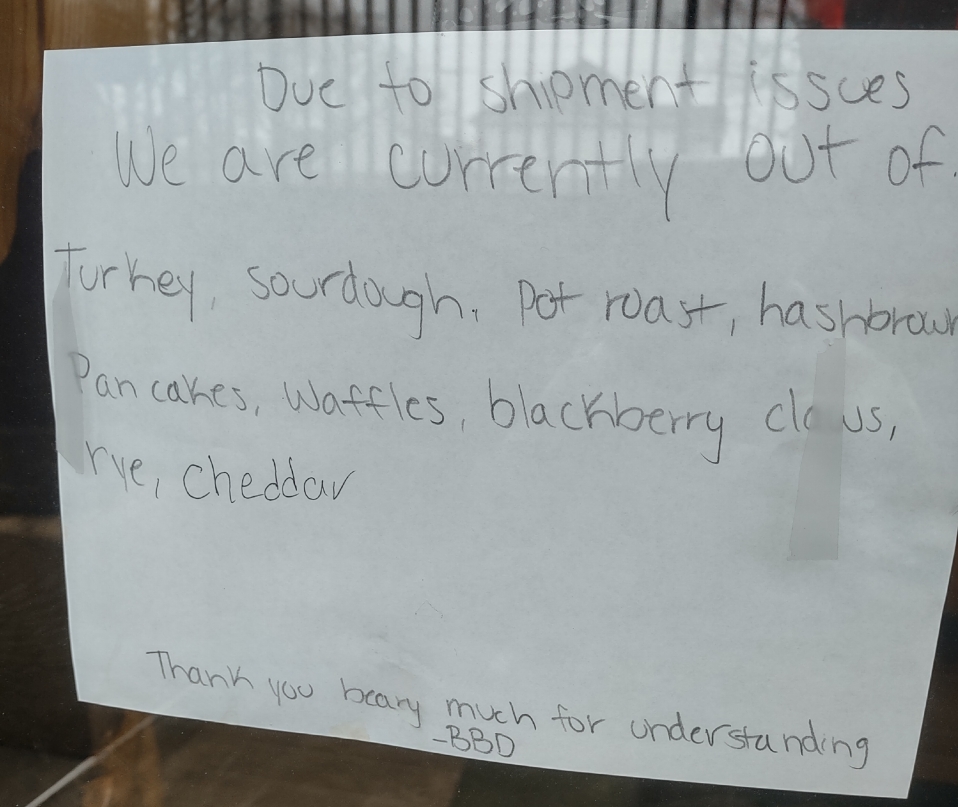 Due to shipment issues
We are currently out of.
Turkey, sourdough, Pot roast, hashbrown
Pancakes, Waffles, blackberry claws,
rye, Cheddar
Thank you beary much for understanding
-BBD